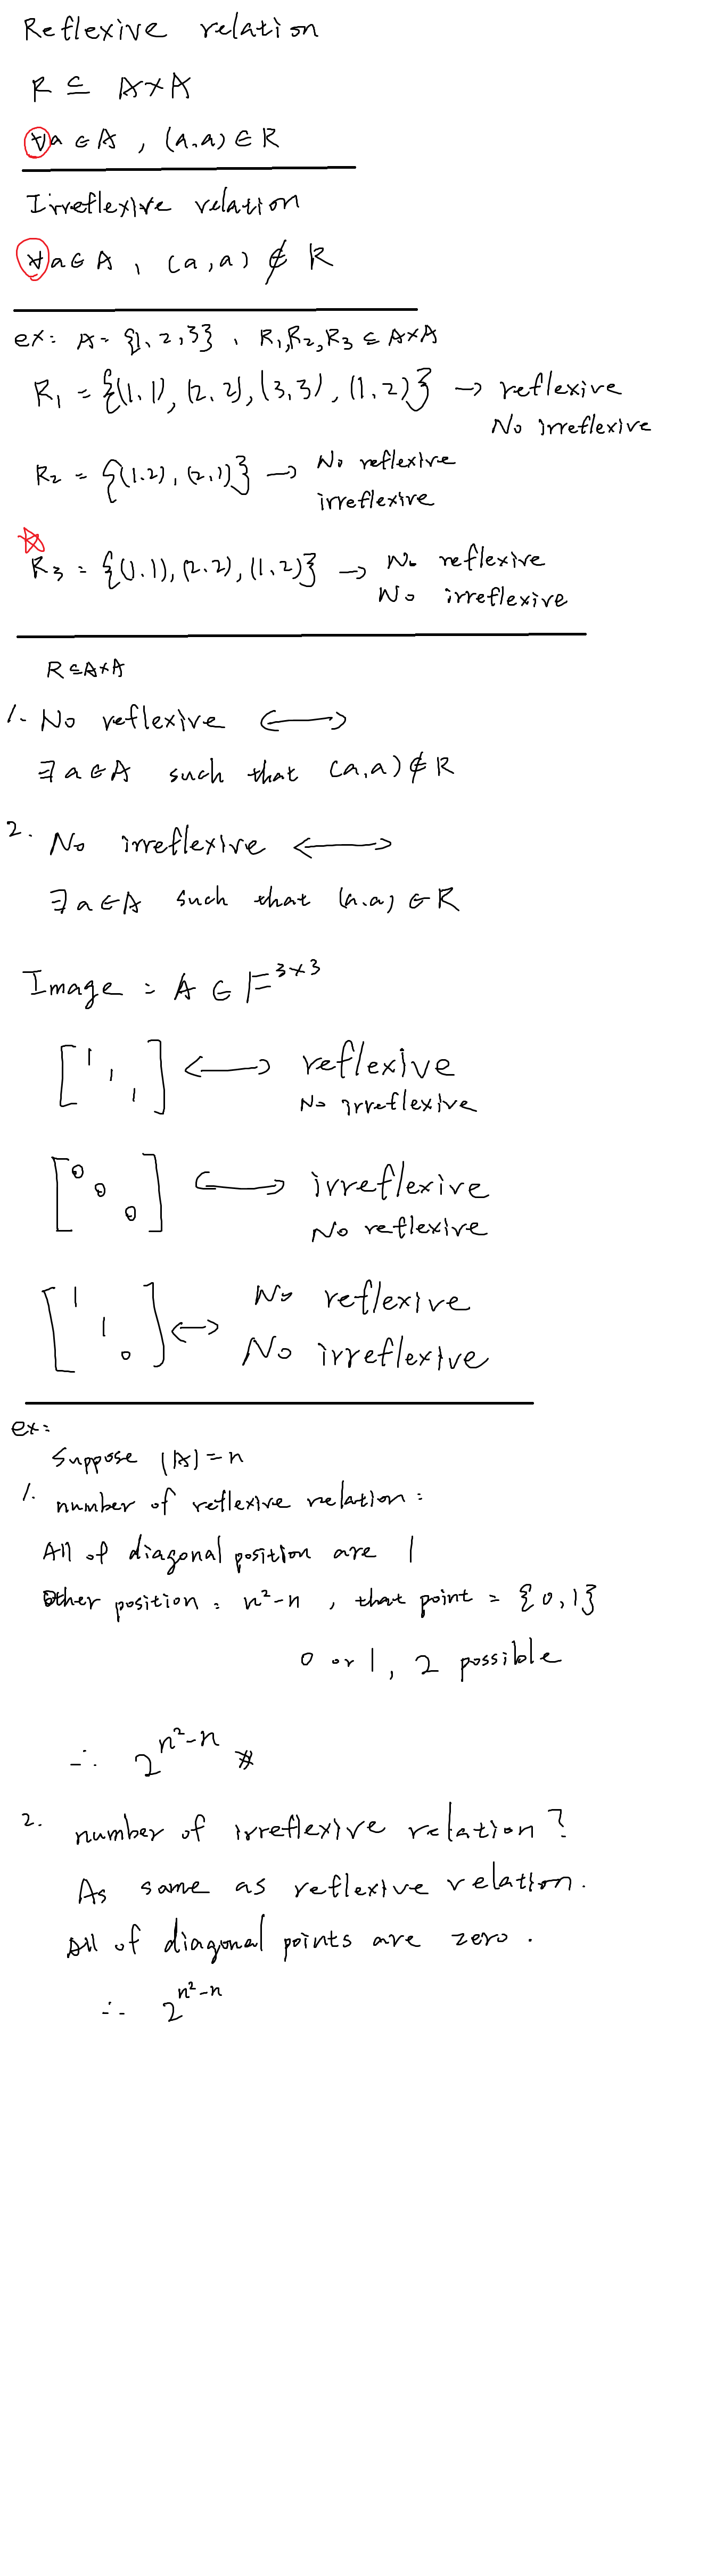 Reflexive relation
R ⊆ A×A
∀a ∈ A , (a,a) ∈ R
Irreflexive relation
∀a ∈ A , (a,a) ∉ R
ex: A = {1, 2, 3} , R₁,R₂,R₃ ⊆ A×A
R₁ = {(1,1), (2,2), (3,3), (1,2)} → reflexive
No irreflexive
R₂ = {(1,2), (2,1)} → No reflexive
irreflexive
R₃ = {(1,1), (2,2), (1,2)} → No reflexive
No irreflexive
R ⊆ A×A
1. No reflexive ↔
∃ a ∈ A such that (a,a) ∉ R
2. No irreflexive ↔
∃ a ∈ A such that (a,a) ∈ R
Image : A ∈ F^3×3
[1 1 1] ↔ reflexive
No irreflexive
[0 0 0] ↔ irreflexive
No reflexive
[1 1 0] ↔ No reflexive
No irreflexive
ex:
Suppose |A| = n
1. number of reflexive relation :
All of diagonal position are 1
Other position : n²-n , that point = {0,1}
0 or 1, 2 possible
∴ 2^n²-n #
2. number of irreflexive relation ?
As same as reflexive relation.
All of diagonal points are zero .
∴ 2^n²-n